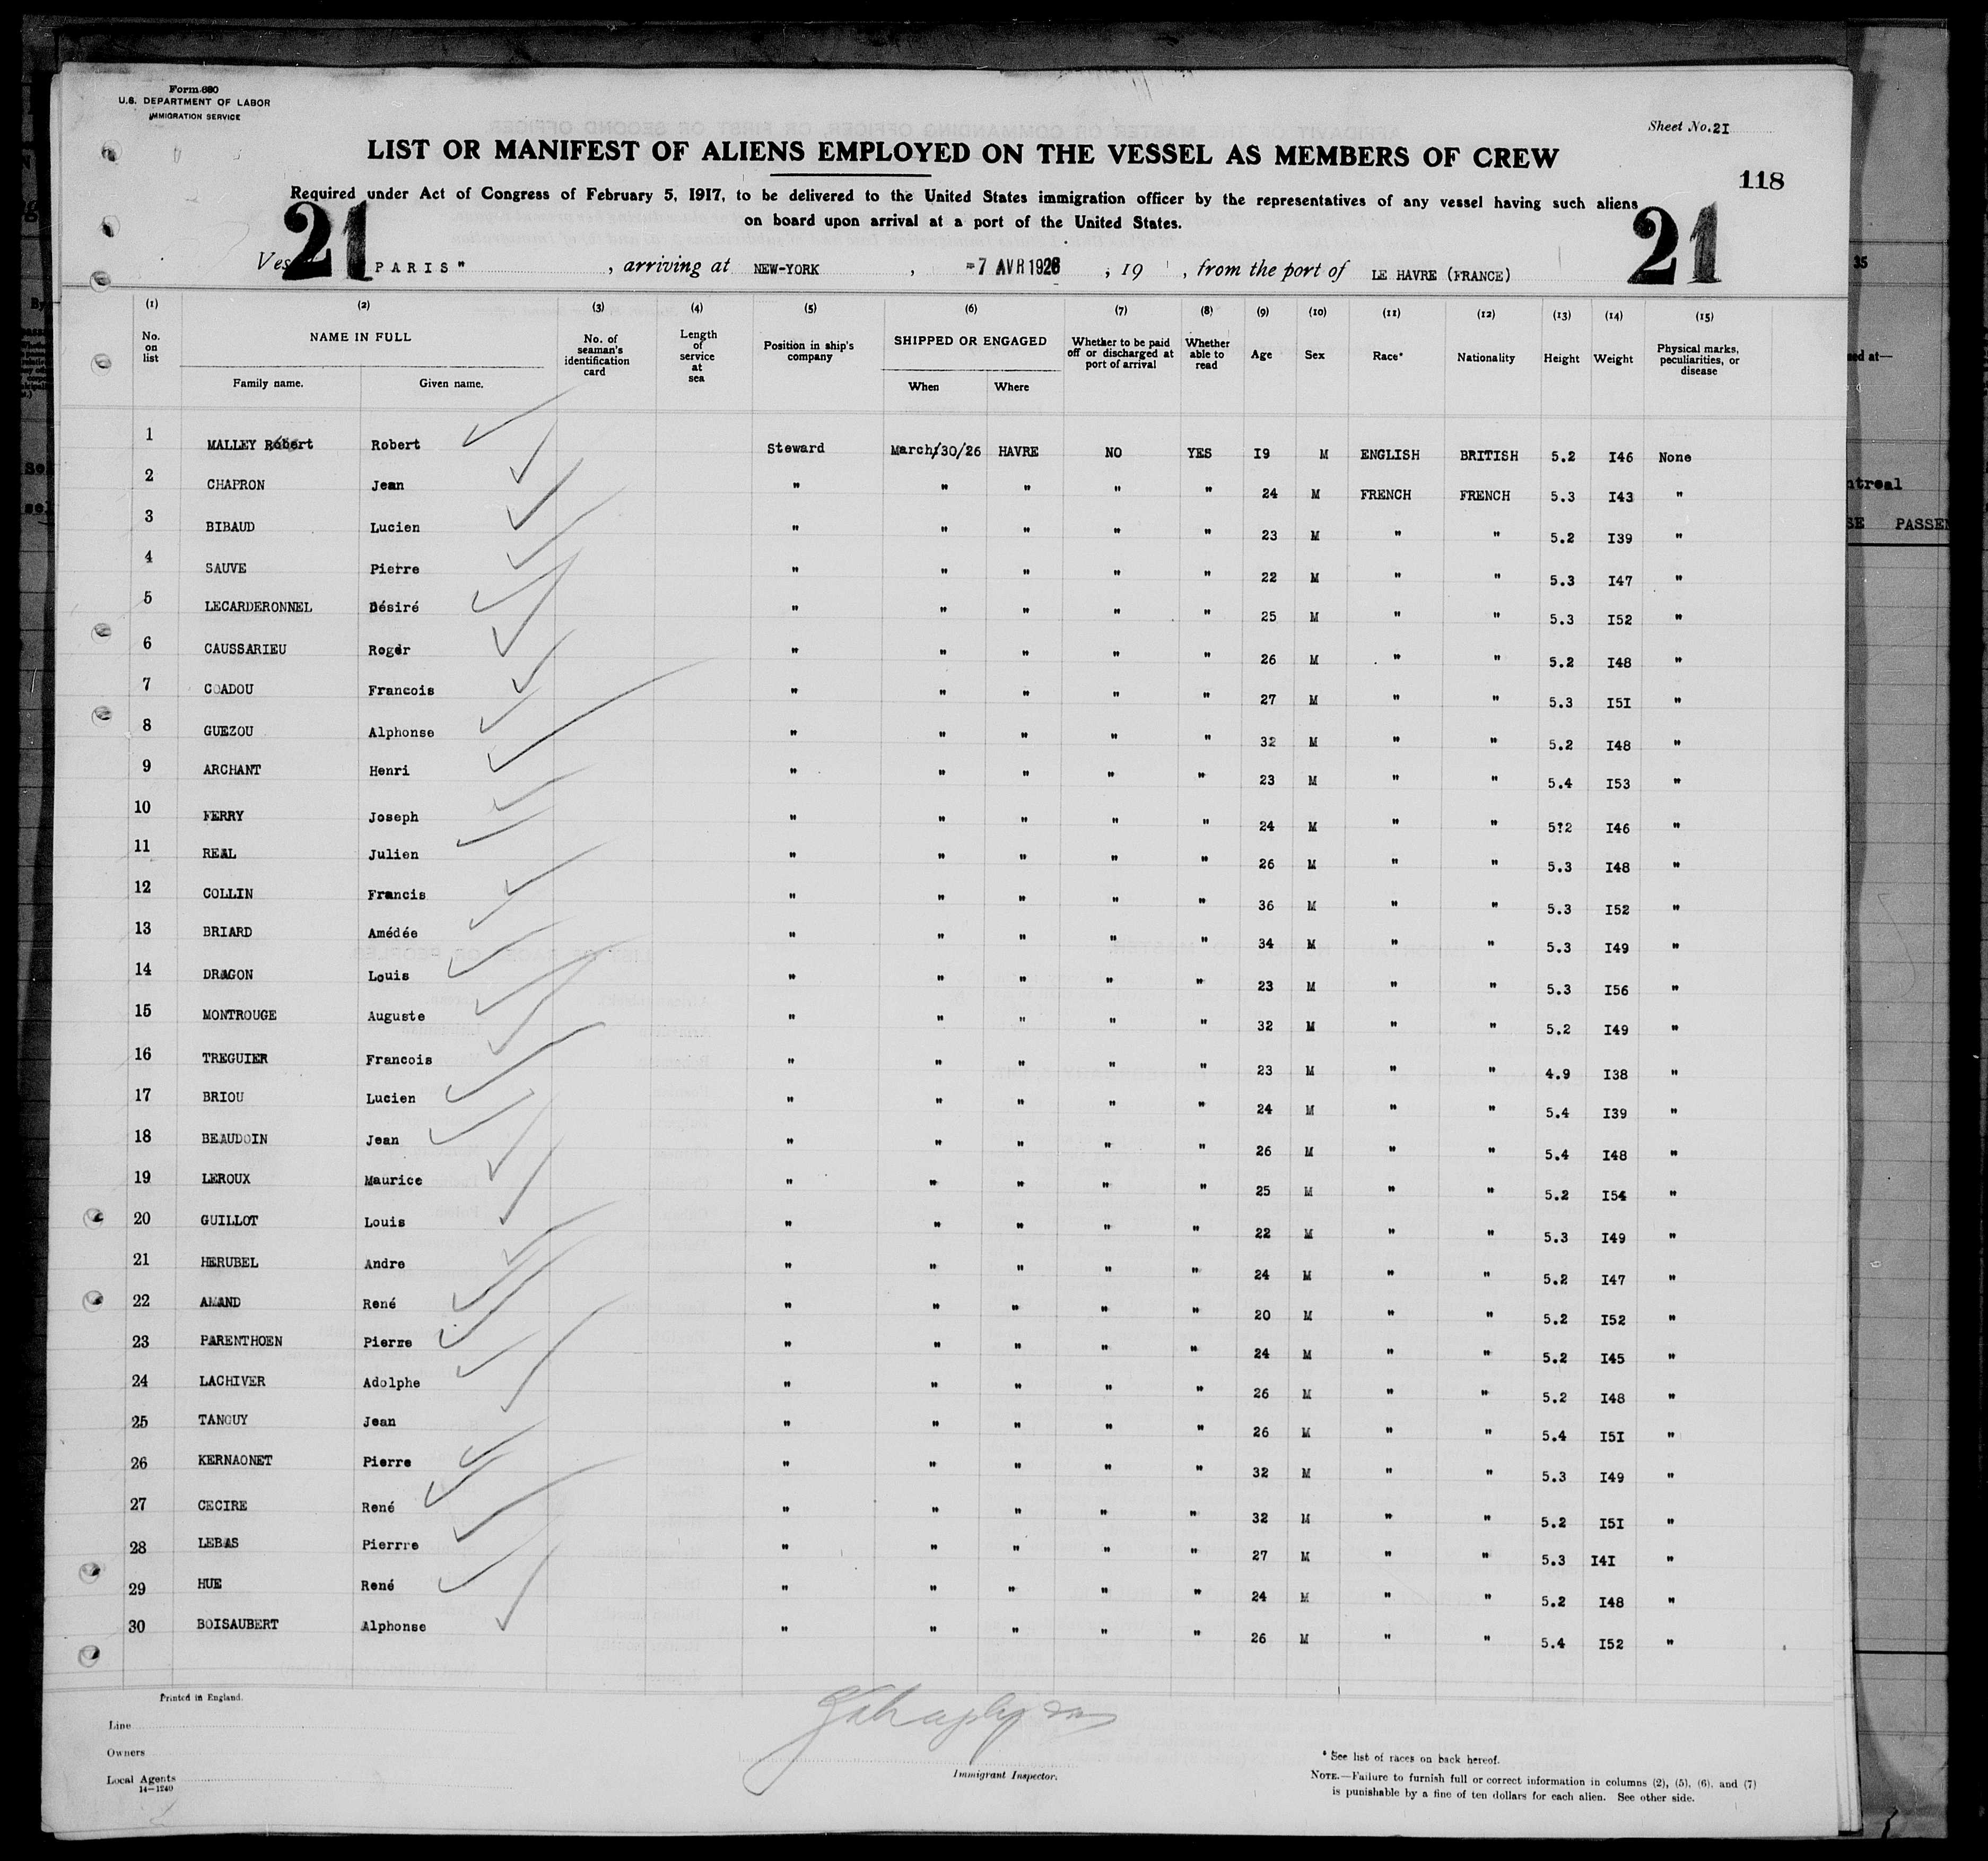 Form 680
U.S. DEPARTMENT OF LABOR
IMMIGRATION SERVICE
Sheet No. 2I
LIST OR MANIFEST OF ALIENS EMPLOYED ON THE VESSEL AS MEMBERS OF CREW
118
Required under Act of Congress of February 5, 1917, to be delivered to the United States immigration officer by the representatives of any vessel having such aliens
on board upon arrival at a port of the United States.
21 21
PARIS" , arriving at NEW-YORK , -7 AVR 1926 , 19 , from the port of LE HAVRE (FRANCE)
(1) (2) (3) (4) (5) (6) (7) (8) (9) (10) (11) (12) (13) (14) (15)
No. on list NAME IN FULL Family name. Given name. No. of seaman's identification card Length of service at sea Position in ship's company SHIPPED OR ENGAGED When Where Whether to be paid off or discharged at port of arrival Whether able to read Age Sex Race* Nationality Height Weight Physical marks, peculiarities, or disease
1 MALLEY Robert Robert Steward March/30/26 HAVRE NO YES I9 M ENGLISH BRITISH 5.2 I46 None
2 CHAPRON Jean " " " " " 24 M FRENCH FRENCH 5.3 I43 "
3 BIBAUD Lucien " " " " " 23 M " " 5.2 I39 "
4 SAUVE Pierre " " " " " 22 M " " 5.3 I47 "
5 LECARDERONNEL Désiré " " " " " 25 M " " 5.3 I52 "
6 CAUSSARIEU Roger " " " " " 26 M " " 5.2 I48 "
7 COADOU Francois " " " " " 27 M " " 5.3 I5I "
8 GUEZOU Alphonse " " " " " 32 M " " 5.2 I48 "
9 ARCHANT Henri " " " " " 23 M " " 5.4 I53 "
10 FERRY Joseph " " " " " 24 M " " 5?2 I46 "
11 REAL Julien " " " " " 26 M " " 5.3 I48 "
12 COLLIN Francis " " " " " 36 M " " 5.3 I52 "
13 BRIARD Amédée " " " " " 34 M " " 5.3 I49 "
14 DRAGON Louis " " " " " 23 M " " 5.3 I56 "
15 MONTROUGE Auguste " " " " " 32 M " " 5.2 I49 "
16 TREGUIER Francois " " " " " 23 M " " 4.9 I38 "
17 BRIOU Lucien " " " " " 24 M " " 5.4 I39 "
18 BEAUDOIN Jean " " " " " 26 M " " 5.4 I48 "
19 LEROUX Maurice " " " " " 25 M " " 5.2 I54 "
20 GUILLOT Louis " " " " " 22 M " " 5.3 I49 "
21 HERUBEL Andre " " " " " 24 M " " 5.2 I47 "
22 AMAND René " " " " " 20 M " " 5.2 I52 "
23 PARENTHOEN Pierre " " " " " 24 M " " 5.2 I45 "
24 LACHIVER Adolphe " " " " " 26 M " " 5.2 I48 "
25 TANGUY Jean " " " " " 26 M " " 5.4 I5I "
26 KERNAONET Pierre " " " " " 32 M " " 5.3 I49 "
27 CECIRE René " " " " " 32 M " " 5.2 I5I "
28 LEBAS Pierrre " " " " " 27 M " " 5.3 I4I "
29 HUE René " " " " " 24 M " " 5.2 I48 "
30 BOISAUBERT Alphonse " " " " " 26 M " " 5.4 I52 "
Printed in England.
Line
Owners
Local Agents
14-1240
Immigrant Inspector.
* See list of races on back hereof.
NOTE.—Failure to furnish full or correct information in columns (2), (5), (6), and (7)
is punishable by a fine of ten dollars for each alien. See other side.